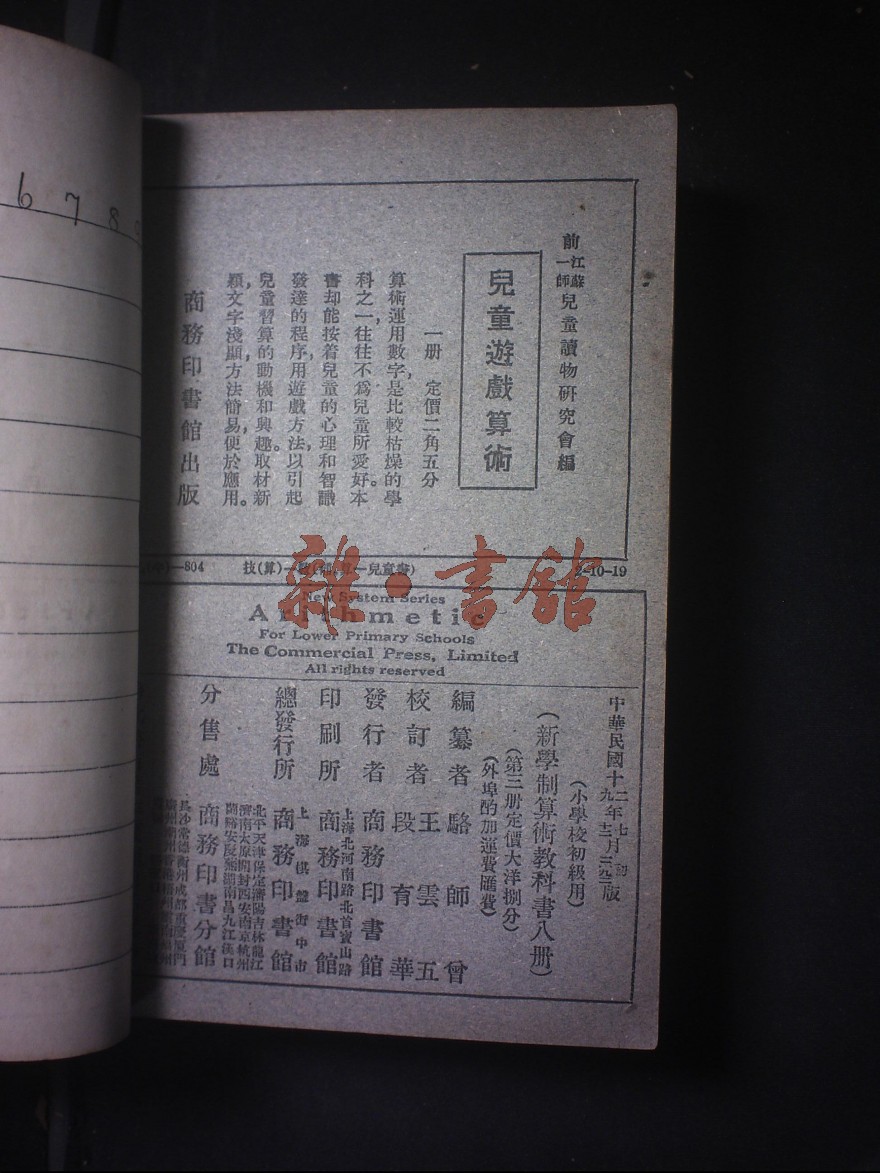 6 7 8
前江蘇一師兒童讀物研究會編
兒童遊戲算術
一册 定價二角五分
算術運用數字，是比較枯燥的學
科之一，往往不爲兒童所愛好。本
書却能按着兒童的心理和智識
發達的程序，用遊戲方法，以引起
兒童習算的動機和興趣。取材新
穎，文字淺顯，方法簡易，便於應用。
商務印書館出版
雜·書館
New System Series
Arithmetic
For Lower Primary Schools
The Commercial Press, Limited
All rights reserved
中華民國十二年七月初版
(小學校初級用)
(新學制算術教科書八册)
(第三册定價大洋捌分)
(外埠酌加運費匯費)
編纂者 駱師曾
校訂者 王雲五
段育華
發行者 商務印書館
上海北河南路北首寶山路
印刷所 商務印書館
上海棋盤街中市
總發行所 商務印書館
北平天津保定瀋陽吉林龍江
濟南太原開封西安南京杭州
分售處 商務印書分館